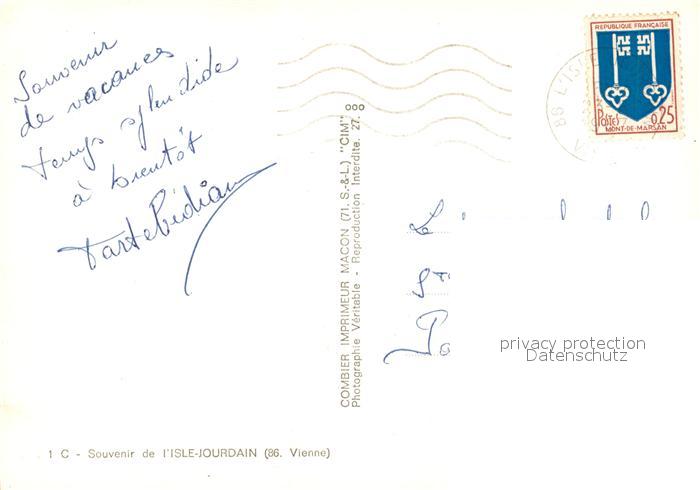 Souvenir
de vacances
temps splendide
à bientôt
REPUBLIQUE FRANÇAISE
POSTES 0,25
MONT-DE-MARSAN
86 L'ISLE
COMBIER IMPRIMEUR MACON (71. S.-&-L.) "CIM" ooo
Photographie Véritable - Reproduction Interdite. 27.
privacy protection
Datenschutz
1 C - Souvenir de l'ISLE-JOURDAIN (86. Vienne)